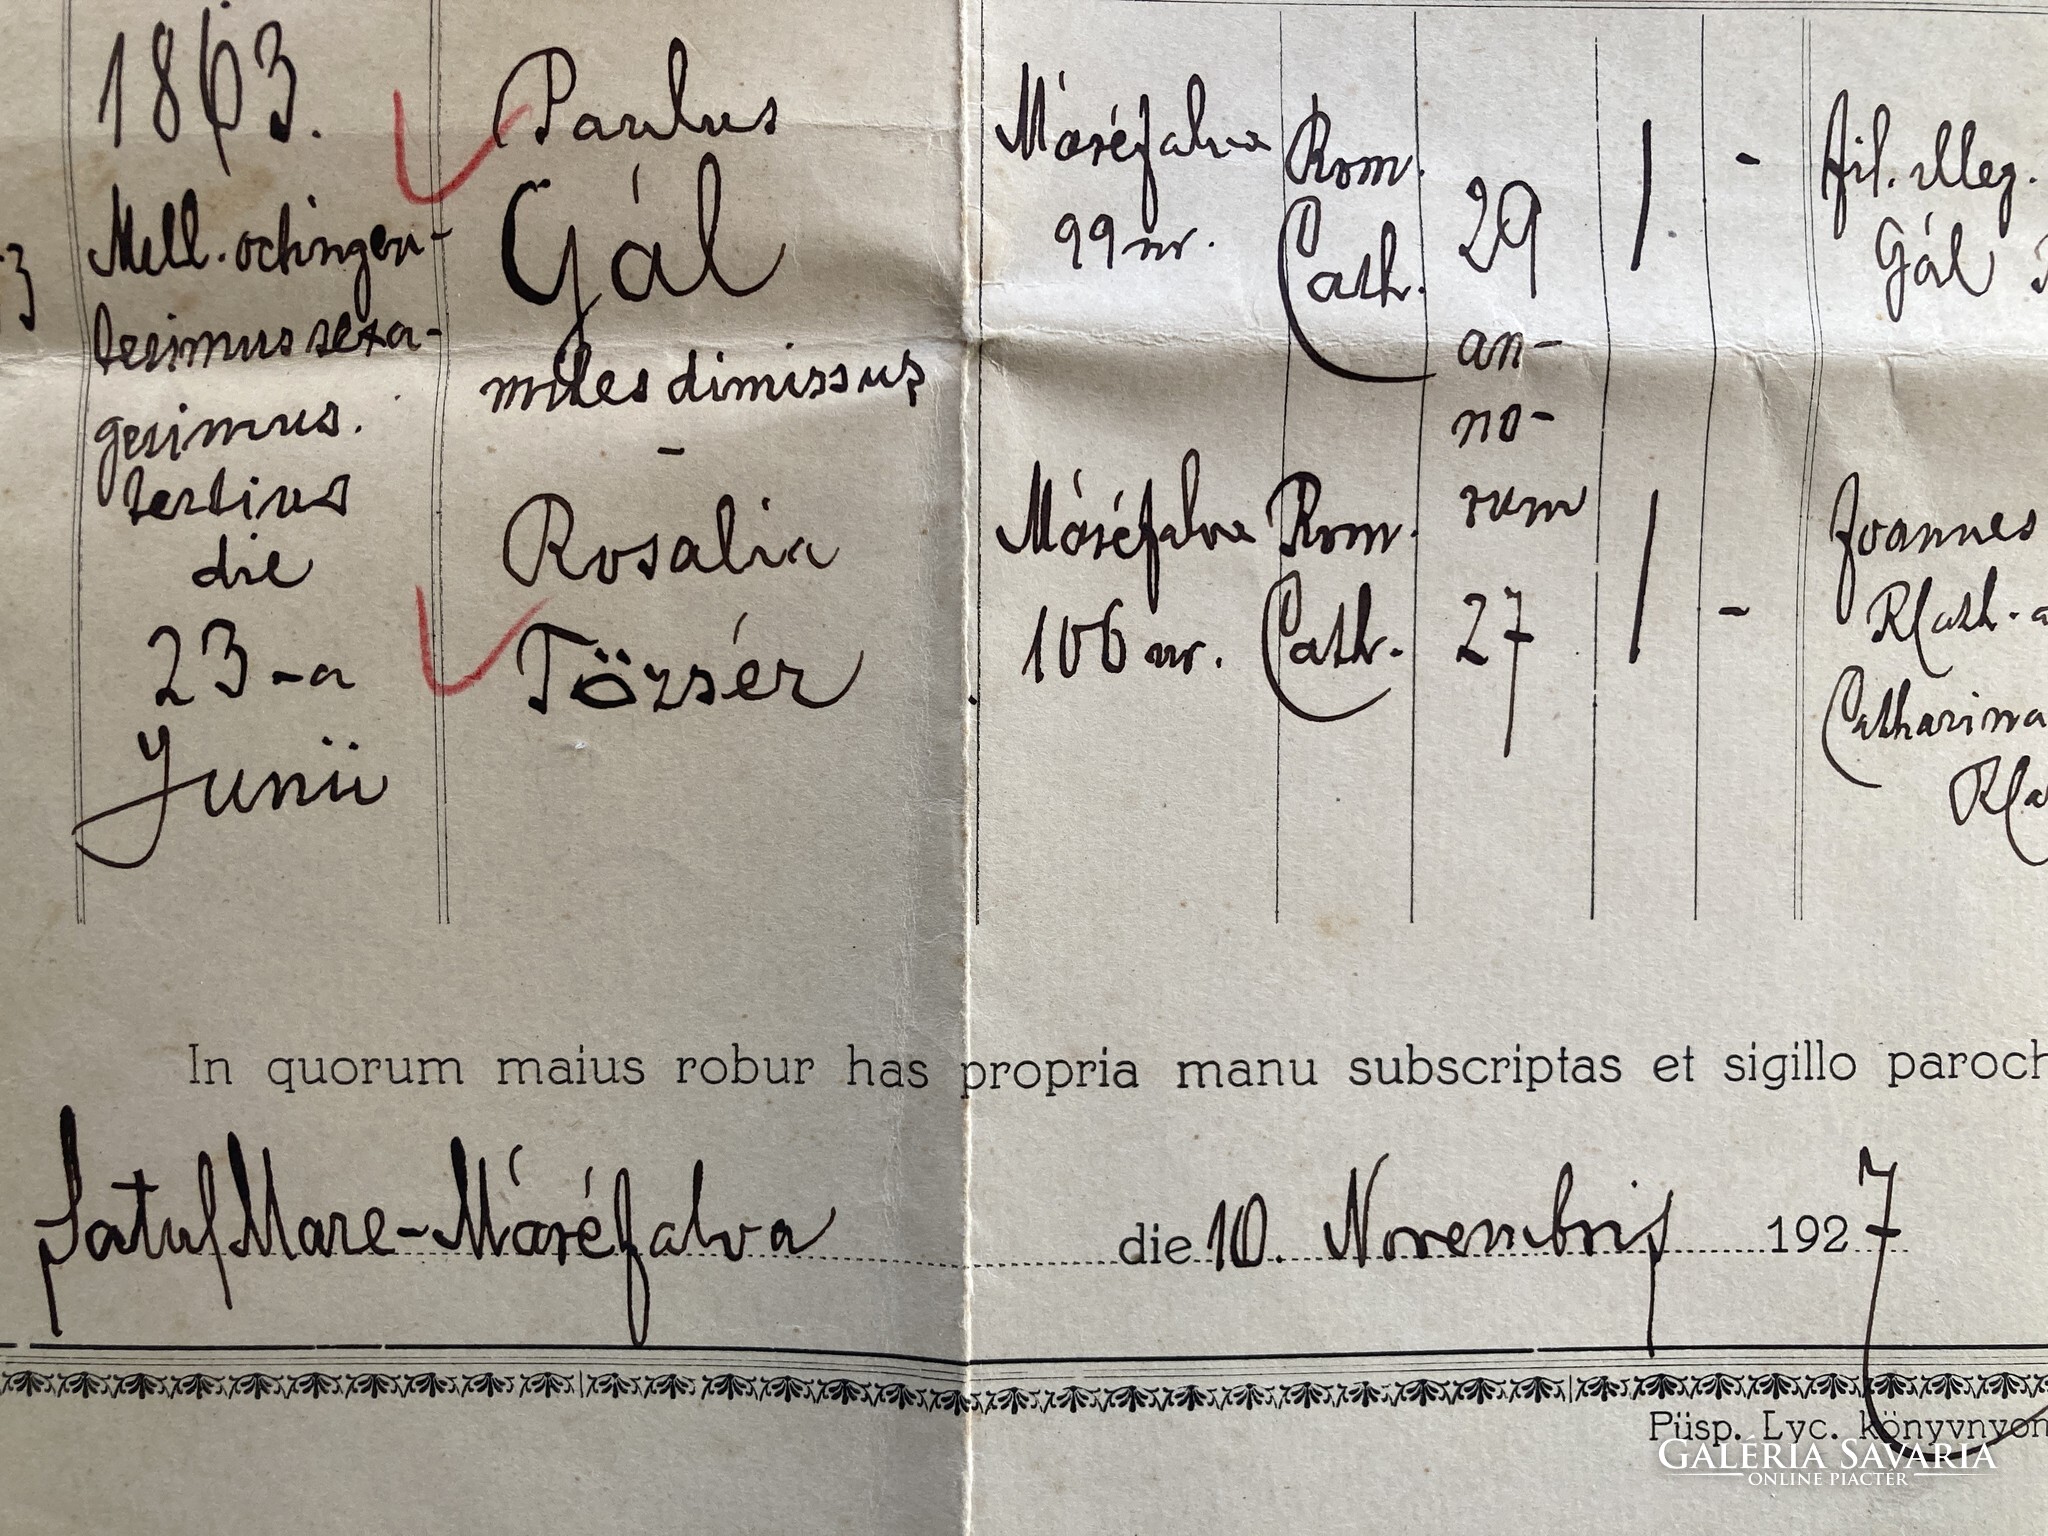 1863.
Mill. octingen-
tesimus sexa-
gesimus.
tertius
die
23-a
Junii
3
Paulus
Gál
miles dimissus
-
Rosalia
Tözsér
Máréfalva
99 nr.
Máréfalva
106 nr.
Rom.
Cath.
Rom.
Cath.
29
an-
no-
rum
27
/
/
-
-
fil. illeg.
Gál
Joannes
Catharina
In quorum maius robur has propria manu subscriptas et sigillo paroch
Satul Mare-Máréfalva die 10. Novembris 1927
Püsp. Lyc. könyvnyom
GALÉRIA SAVARIA
ONLINE PIACTÉR